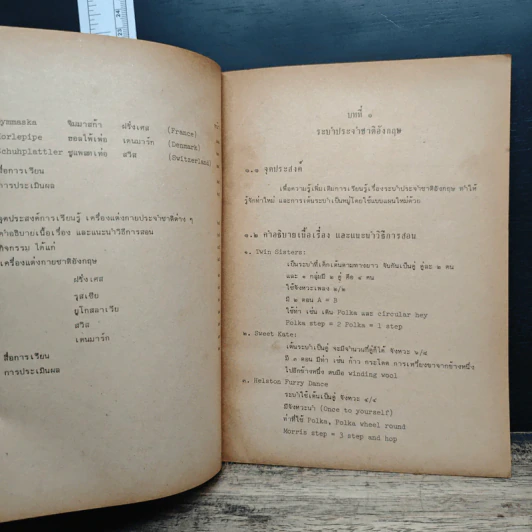 ymmaska ยิมมาสก้า ฝรั่งเศส (France)
Horlepipe ฮอลไพ้เพ่อ เดนมาร์ก (Denmark)
Schuhplattler ชูแพลตเท่อ สวิส (Switzerland)
สื่อการเรียน
การประเมินผล
จุดประสงค์การเรียนรู้ เครื่องแต่งกายประจำชาติต่าง ๆ
คำอธิบายเนื้อเรื่อง และแนะนำวิธีการสอน
กิจกรรม ได้แก่
เครื่องแต่งกายชาติอังกฤษ
ฝรั่งเศส
รุสเซีย
ยูโกสลาเวีย
สวิส
เดนมาร์ก
สื่อการเรียน
การประเมินผล
บทที่ ๑
ระบำประจำชาติอังกฤษ
๑.๑ จุดประสงค์
เพื่อความรู้เพิ่มเติมการเรียนรู้เรื่องระบำประจำชาติอังกฤษ ทำให้
รู้จักท่าใหม่ และการเต้นระบำเป็นหมู่โดยใช้แบบแผนใหม่ด้วย
๑.๒ คำอธิบายเนื้อเรื่อง และแนะนำวิธีการสอน
๑. Twin Sisters:
เป็นระบำที่เด็กเต้นตามทางยาว จับกันเป็นคู่ คู่ละ ๒ คน
และ ๑ กลุ่มมี ๒ คู่ คือ ๔ คน
ใช้จังหวะเพลง ๒/๒
มี ๒ ตอน A = B
ใช้ท่า เช่น เดิน Polka และ circular hey
Polka step = 2 Polka = 1 step
๒. Sweet Kate:
เต้นระบำเป็นคู่ จะมีจำนวนกี่คู่ก็ได้ จังหวะ ๖/๘
มี ๓ ตอน มีท่า เช่น ก้าว กระโดด การเหวี่ยงขาจากข้างหนึ่ง
ไปอีกข้างหนึ่ง ตบมือ winding wool
๓. Helston Furry Dance
ระบำใช้เต้นเป็นคู่ จังหวะ ๔/๔
มีจังหวะนำ (Once to yourself)
ท่าที่ใช้ Polka, Polka wheel round
Morris step = 3 step and hop